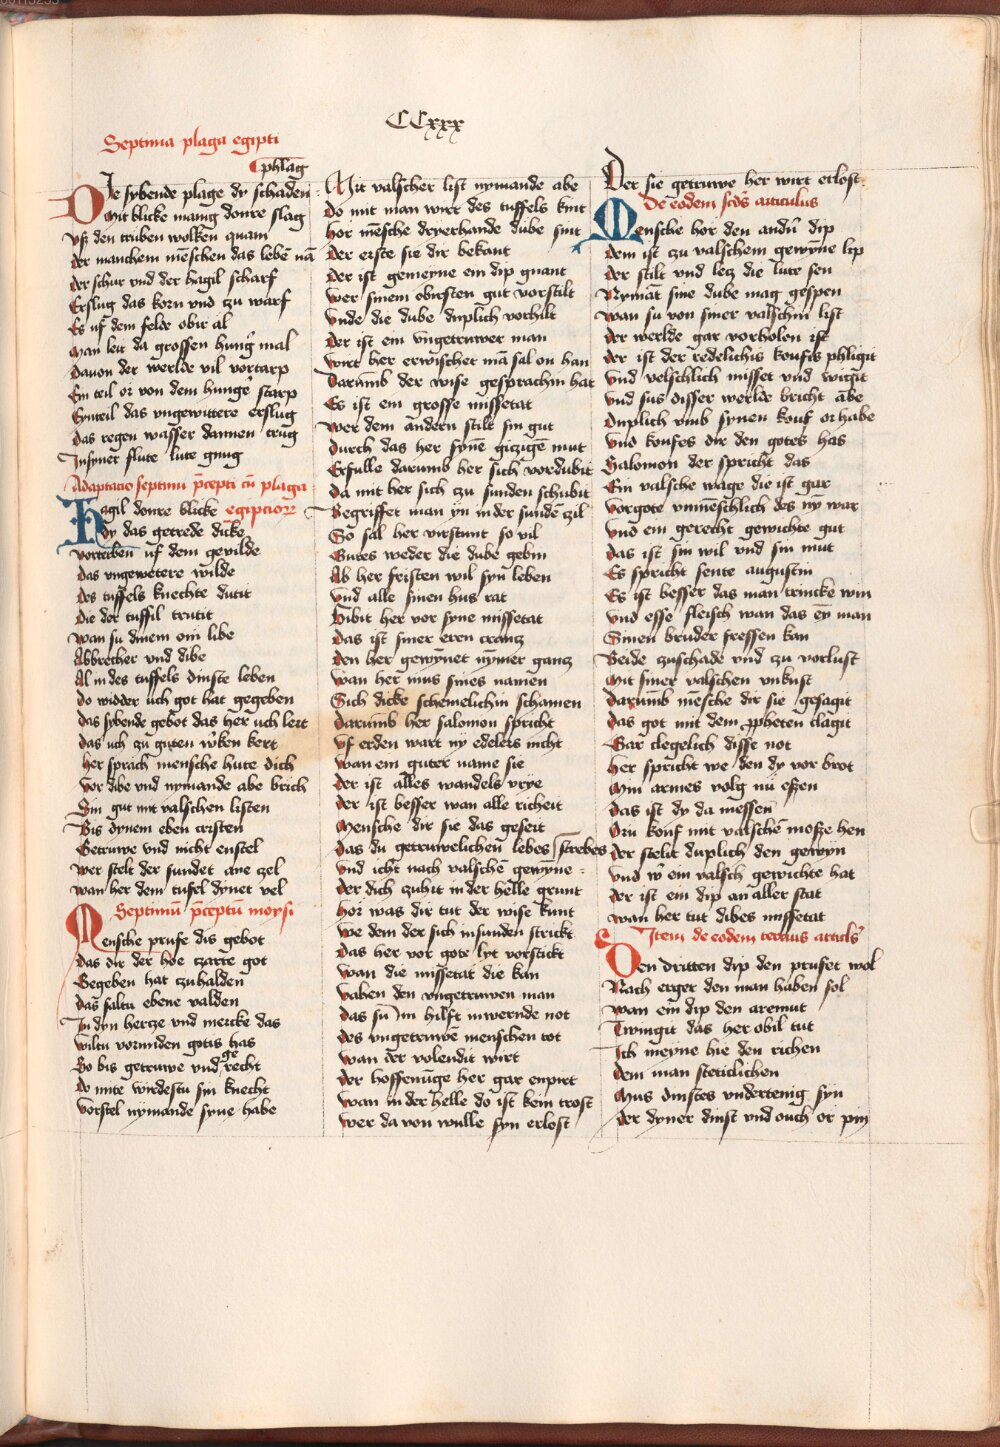 CCxxx
Septima plaga egipti
phlag
Die sybende plage dy schaden
Mit blicke manig donre slag
Uß den truben wolken quam
Der manchem mēschen das lebē nā
Der schur vnd der hagil scharf
Erslug das korn vnd zu warf
Es uf dem felde obir al
Man leit da grossen hung᷑ mal
Dauon der werlde vil vortarp
Ein teil or von dem hung᷑ starp
Eynteil das vngewittere erslug
Das regen wasser dannen trug
In syner flute lute gnug
Adaptacio septimi p̄cepti cū plaga
egipcior̄
Hagil donre blicke
Dy das getrede dicke
Vorterben uf dem gevilde
Das vngewetere wilde
Des tuffels knechte dutit
Die der tuffil trutit
Wan su dinem om libe
Abbrecher vnd dibe
Al in des tuffels dinste leben
Do widder uch got hat gegeben
Das sybende gebot das her uch lert
Das uch zu guten w᷑ken kert
Her sprach mensche hute dich
Vor dibe vnd nymande abe brich
Sin gut mit valschen listen
Bis dynem eben cristen
Getruwe vnd nicht enstel
Wer stelt der sundet ane zel
Wan her dem tufel dynet vel
Septimū p̄ceptū moysi
Mensche prufe dis gebot
Das dir der hoe czarte got
Gegeben hat zu halden
Das saltu ebene valden
In dyn hertze vnd mercke das
Wiltu vormiden gotis has
So bis getruwe vnd gerecht
Do mite wirdestu sin knecht
Vorstel nymande syne habe
Mit valscher list nymande abe
Do mit man wirt des tuffels kint
Hor mēsche dryerhande dube sint
Der erste sie dir bekant
Der ist gemeyne ein dip gnant
Wer sinem obirsten gut vorstilt
Vnde die dube duplich vorhilt
Der ist ein vngetruwer man
Wirt her erwischet mā sal on han
Darumb der wise gesprachin hat
Es ist ein grosse missetat
Wer dem andern stilt sin gut
Durch das her synē giczigē mut
Erfulle darumb her sich vordubit
Da mit her sich zu sunden schubit
Begriffet man yn in der sundē zil
So sal her virstunt so vil
Gutes weder die dube gebin
Ab her fristen wil syn leben
Vnd alle sinen hus rat
Gibit her vor syne missetat
Das ist siner eren crancz
Den her gewȳnet nȳmer gancz
Wan her mus sines namen
Sich dicke schemelichin schamen
Darumb her salomon spricht
Uf erden wart ny edelers nicht
Wan ein guter name sie
Der ist alles wandels vrye
Der ist besser wan alle richeit
Mensche dir sie das geseit
Das du getruwelichen lebes strebes
Vnd icht nach valschē gewȳne
Der dich zuhit in der helle grunt
Hor was dir tut der wise kunt
We dem der sich in sunden strickt
Das her vor gote lyt vorstickt
Wan die missetat die kan
Vahen den vngetruwen man
Das su im hilft in wernde not
Des vngetruwē menschen tot
Wan der volendit wirt
Der hoffenūge her gar enpirt
Wan in der helle do ist kein trost
Wer da von wulle syn erlost
Der sie getruwe her wirt erlost
De eodem scd᷑s articulus
Mensche hor den andn̄ dip
Dem ist zu valschem gewȳne lip
Der stilt vnd letz die lute sen
Nymāt sine dube mag gespen
Wan su von siner valschin list
Der werlde gar vorholen ist
Der ist der redelichis koufes phligit
Vnd velschlich misset vnd wigit
Vnd sus disser werlde bricht abe
Duplich vmb synen kouf or habe
Vnd koufes dir den gotes has
Salomon der spricht das
Ein valsche wage die ist gar
Vorgote vnmēschlich des nȳ war
Vnd ein gerecht gewichte gut
Das ist sin wil vnd sin mut
Es spricht sente augustin
Es ist besser das man trincke win
Vnd esse fleisch wan das eȳ man
Sinen bruder fressen kan
Beide zuschade vnd zu vorlust
Mit siner valschen vnkust
Darumb mēsche dir sie gesagit
Das got mit dem ꝓpheten clagit
Gar clegelich disse not
Her spricht we den dy vor brot
Min armes volg nu eßen
Das ist dy da messen
Oru kouf mit valschē moße hen
Der stelit duplich den gewyn
Vnd w᷑ ein valsch gewichte hat
Der ist ein dip an aller stat
Wan her tut dibes missetat
Item de eodem tercius articl᷑s
Den dritten dip den prufet wol
Nach erger den man haben sol
Wan ein dip den aremut
Twingit das her obil tut
Ich meyne hie den richen
Dem man steticlichen
Mus dinstes vndertenig syn
Der dyner dinst vnd ouch or pin